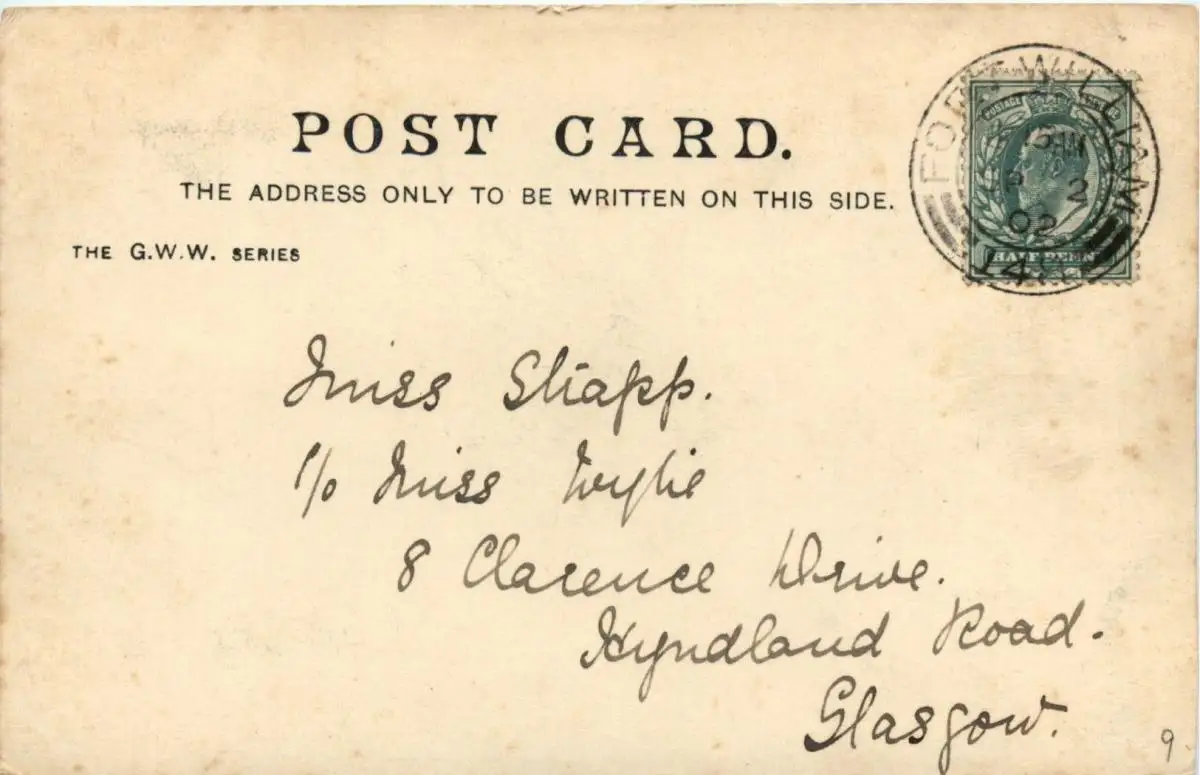 POST CARD.
THE ADDRESS ONLY TO BE WRITTEN ON THIS SIDE.
THE G.W.W. SERIES
FORT WILLIAM
POSTAGE
2
02
HALF PENNY
Miss
c/o Miss Wylie
8 Clarence Drive.
Hyndland Road.
Glasgow.
9